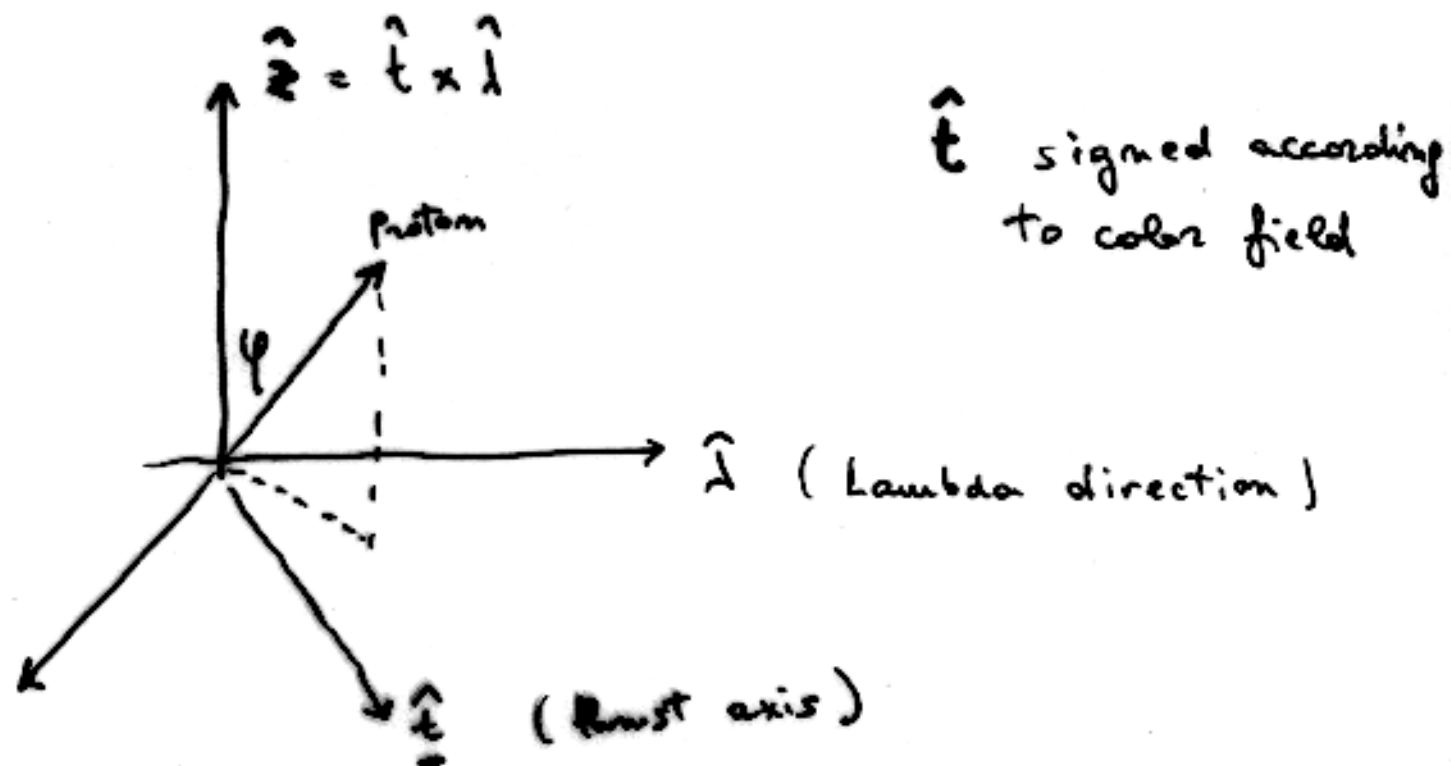 ẑ = t̂ x λ̂
t̂ signed according
to color field
Proton
φ
λ̂ (Lambda direction)
t̂ (thrust axis)